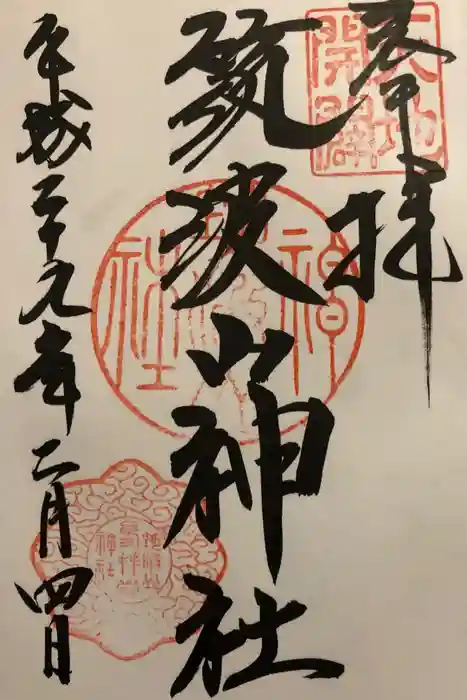 奉拝
天地開闢
筑波山神社
平成二十九年二月四日